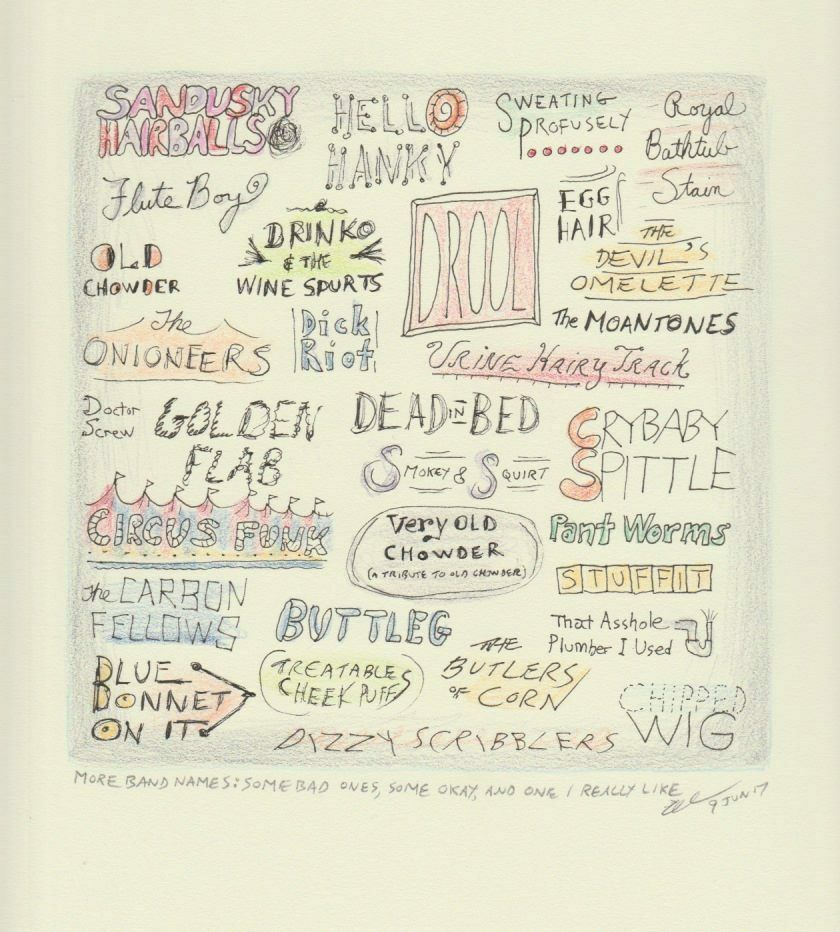 SANDUSKY
HAIRBALLS
HELLO
HANKY
SWEATING
PROFUSELY
Royal
Bathtub
Stain
Flute Boy
EGG
HAIR
DRINKO
& THE
WINE SPURTS
DROOL
OLD
CHOWDER
THE
DEVIL'S
OMELETTE
The
ONIONEERS
Dick
Riot
The MOANTONES
URINE HAIRY TRACK
Doctor
Screw
GOLDEN
FLAB
DEAD IN BED
CRYBABY
SPITTLE
SMOKEY & SQUIRT
CIRCUS FUNK
Very OLD
CHOWDER
(A TRIBUTE TO OLD CHOWDER)
Pant Worms
STUFFIT
the CARBON
FELLOWS
BUTTLEG
That Asshole
Plumber I Used
BLUE
BONNET
ON IT
TREATABLE
CHEEK PUFFS
THE
BUTLERS
OF CORN
CHIPPED
WIG
DIZZY SCRIBBLERS
MORE BAND NAMES: SOME BAD ONES, SOME OKAY, AND ONE I REALLY LIKE
9 JUN 17